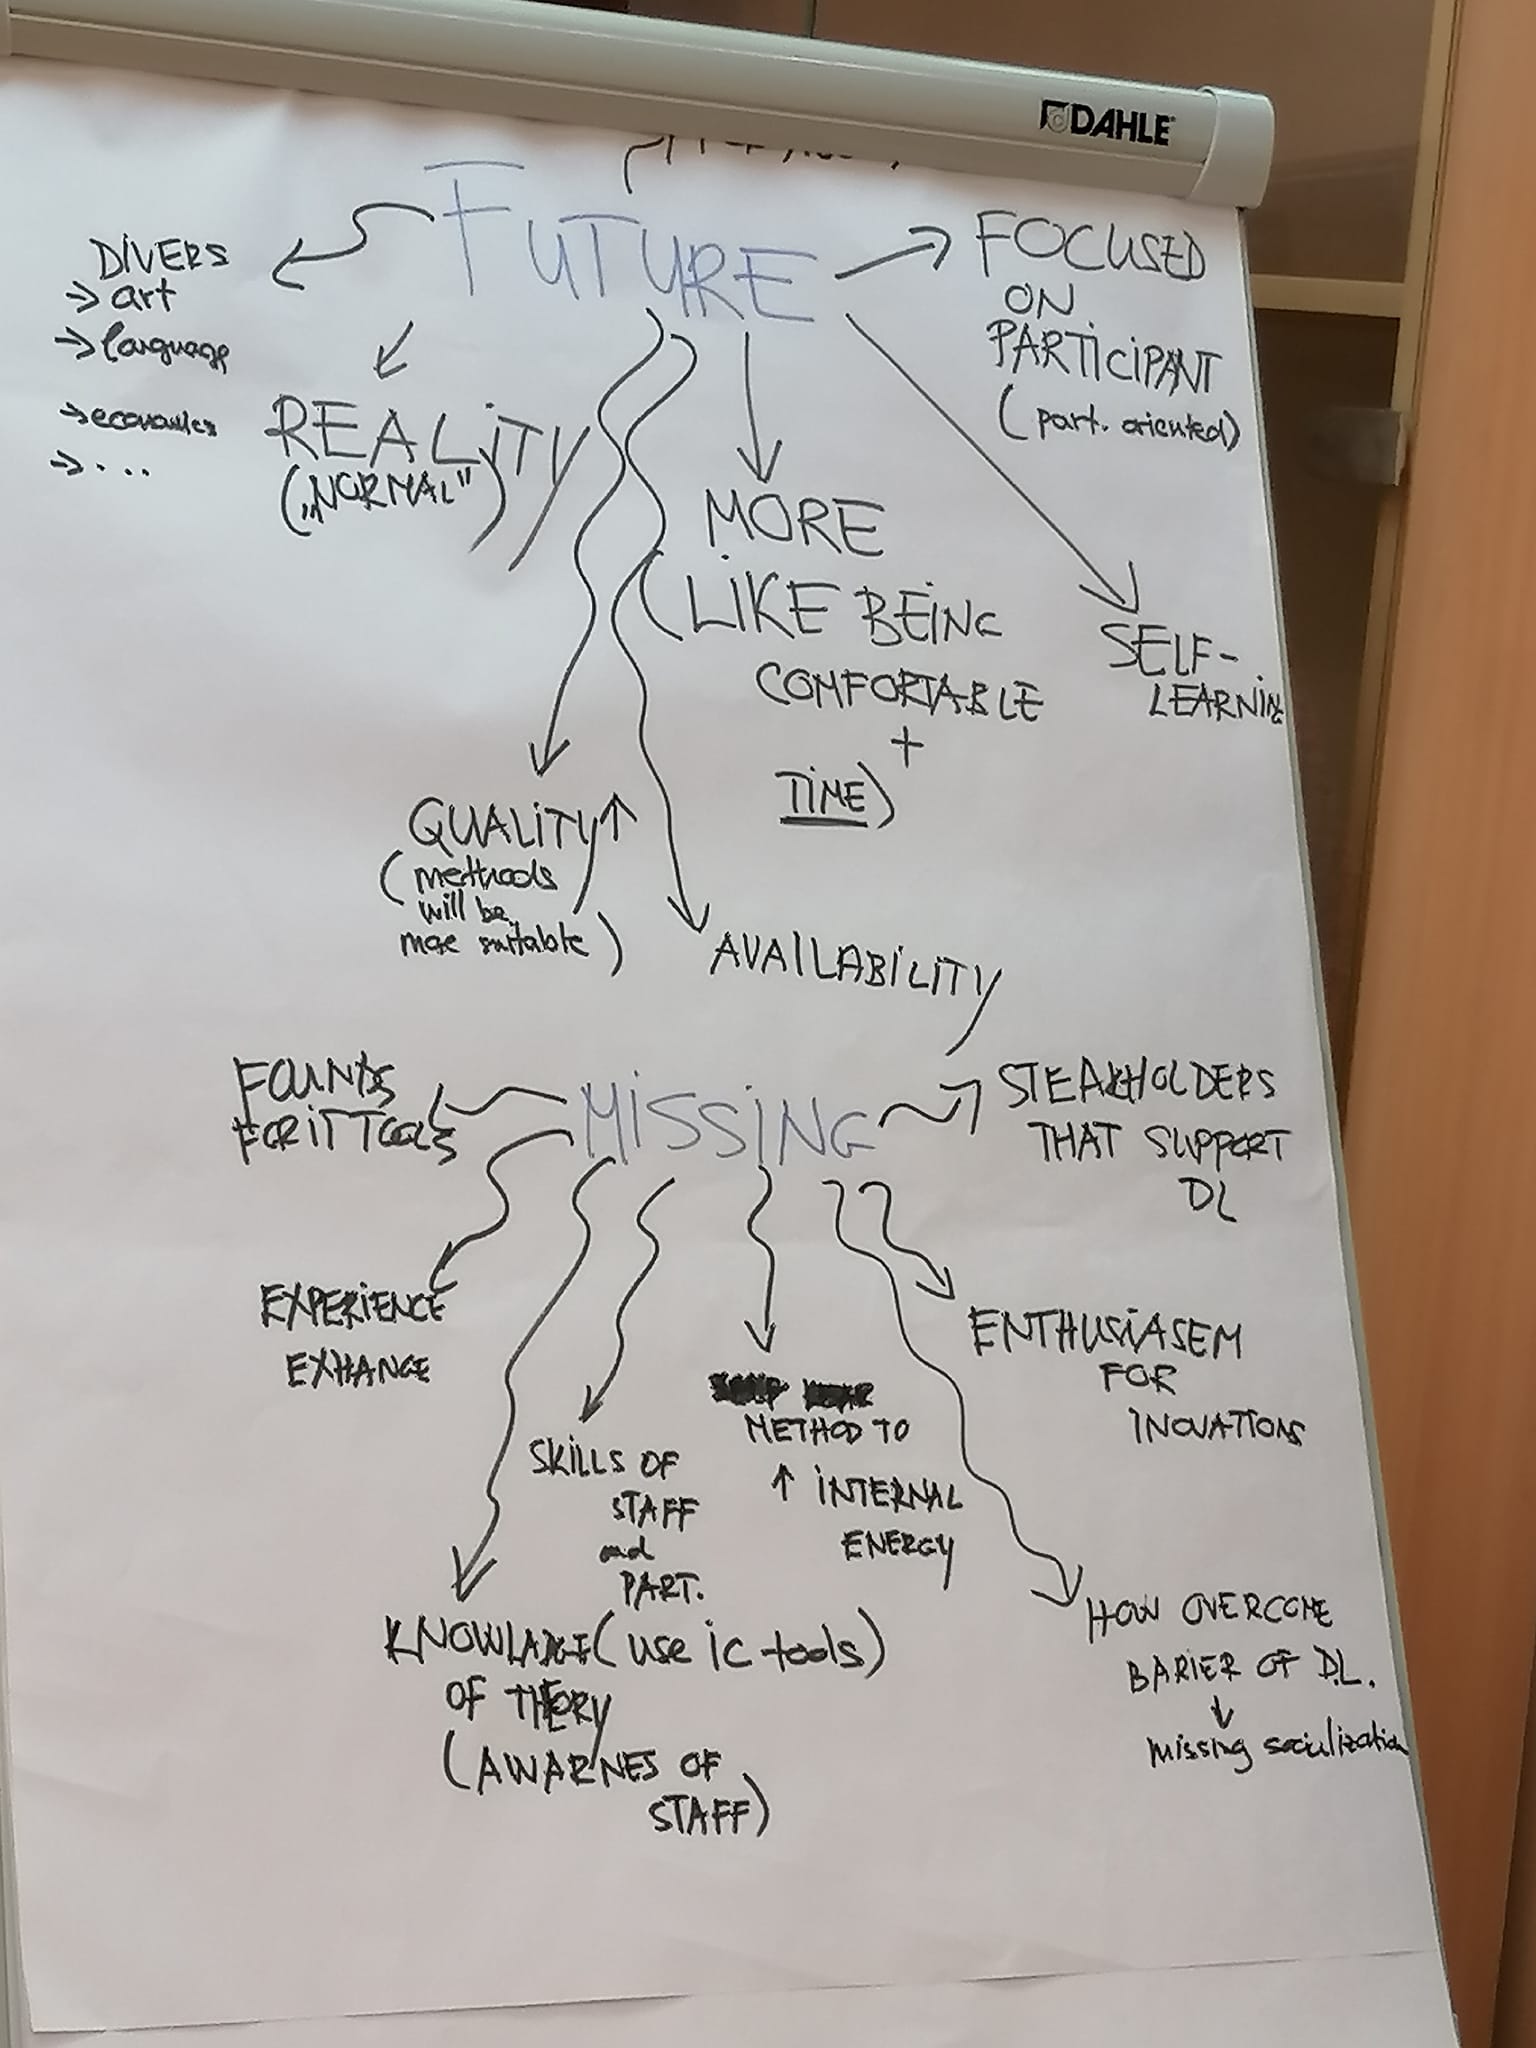 DAHLE
FUTURE
DIVERS
→ art
→ language
→ economics
→ ...
REALITY
(„NORMAL")
FOCUSED
ON
PARTICIPANT
(part. oriented)
MORE
(LIKE BEING
COMFORTABLE
+
TIME)
SELF-
LEARNING
QUALITY ↑
(methods
will be
more suitable)
AVAILABILITY
MISSING
FOUNDS
FOR IT TOOLS
STEAKHOLDERS
THAT SUPPORT
DL
EXPERIENCE
EXHANGE
ENTHUSIASEM
FOR
INOVATIONS
METHOD TO
↑ INTERNAL
ENERGY
SKILLS OF
STAFF
and
PART.
(use ic tools)
KNOWLADGE
OF THEORY
(AWARNES OF
STAFF)
HOW OVERCOME
BARIER OF D.L.
↓
missing socialization